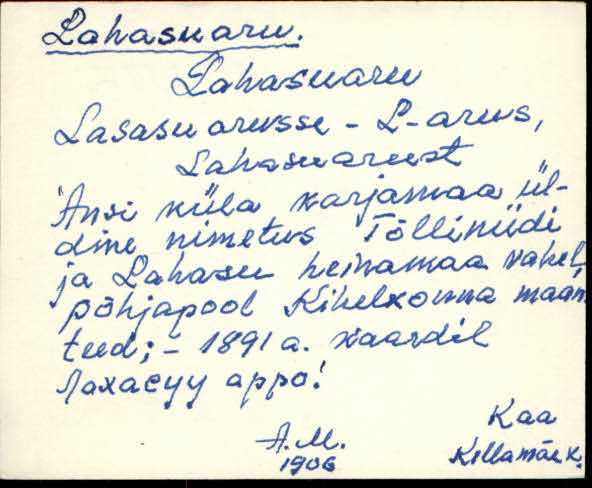 Lahasuaru.
Lahasuaru
Lasasuarusse - L-arus,
Lahasuarust
Ansi küla karjamaa ül-
dine nimetus Tõlliniidi
ja Lahasu heinamaa vahel,
põhjapool Kihelkonna maan
teed; - 1891 a. kaardil
Лахасуу арро!
Kaa
A.M. Killamäe k.
1906